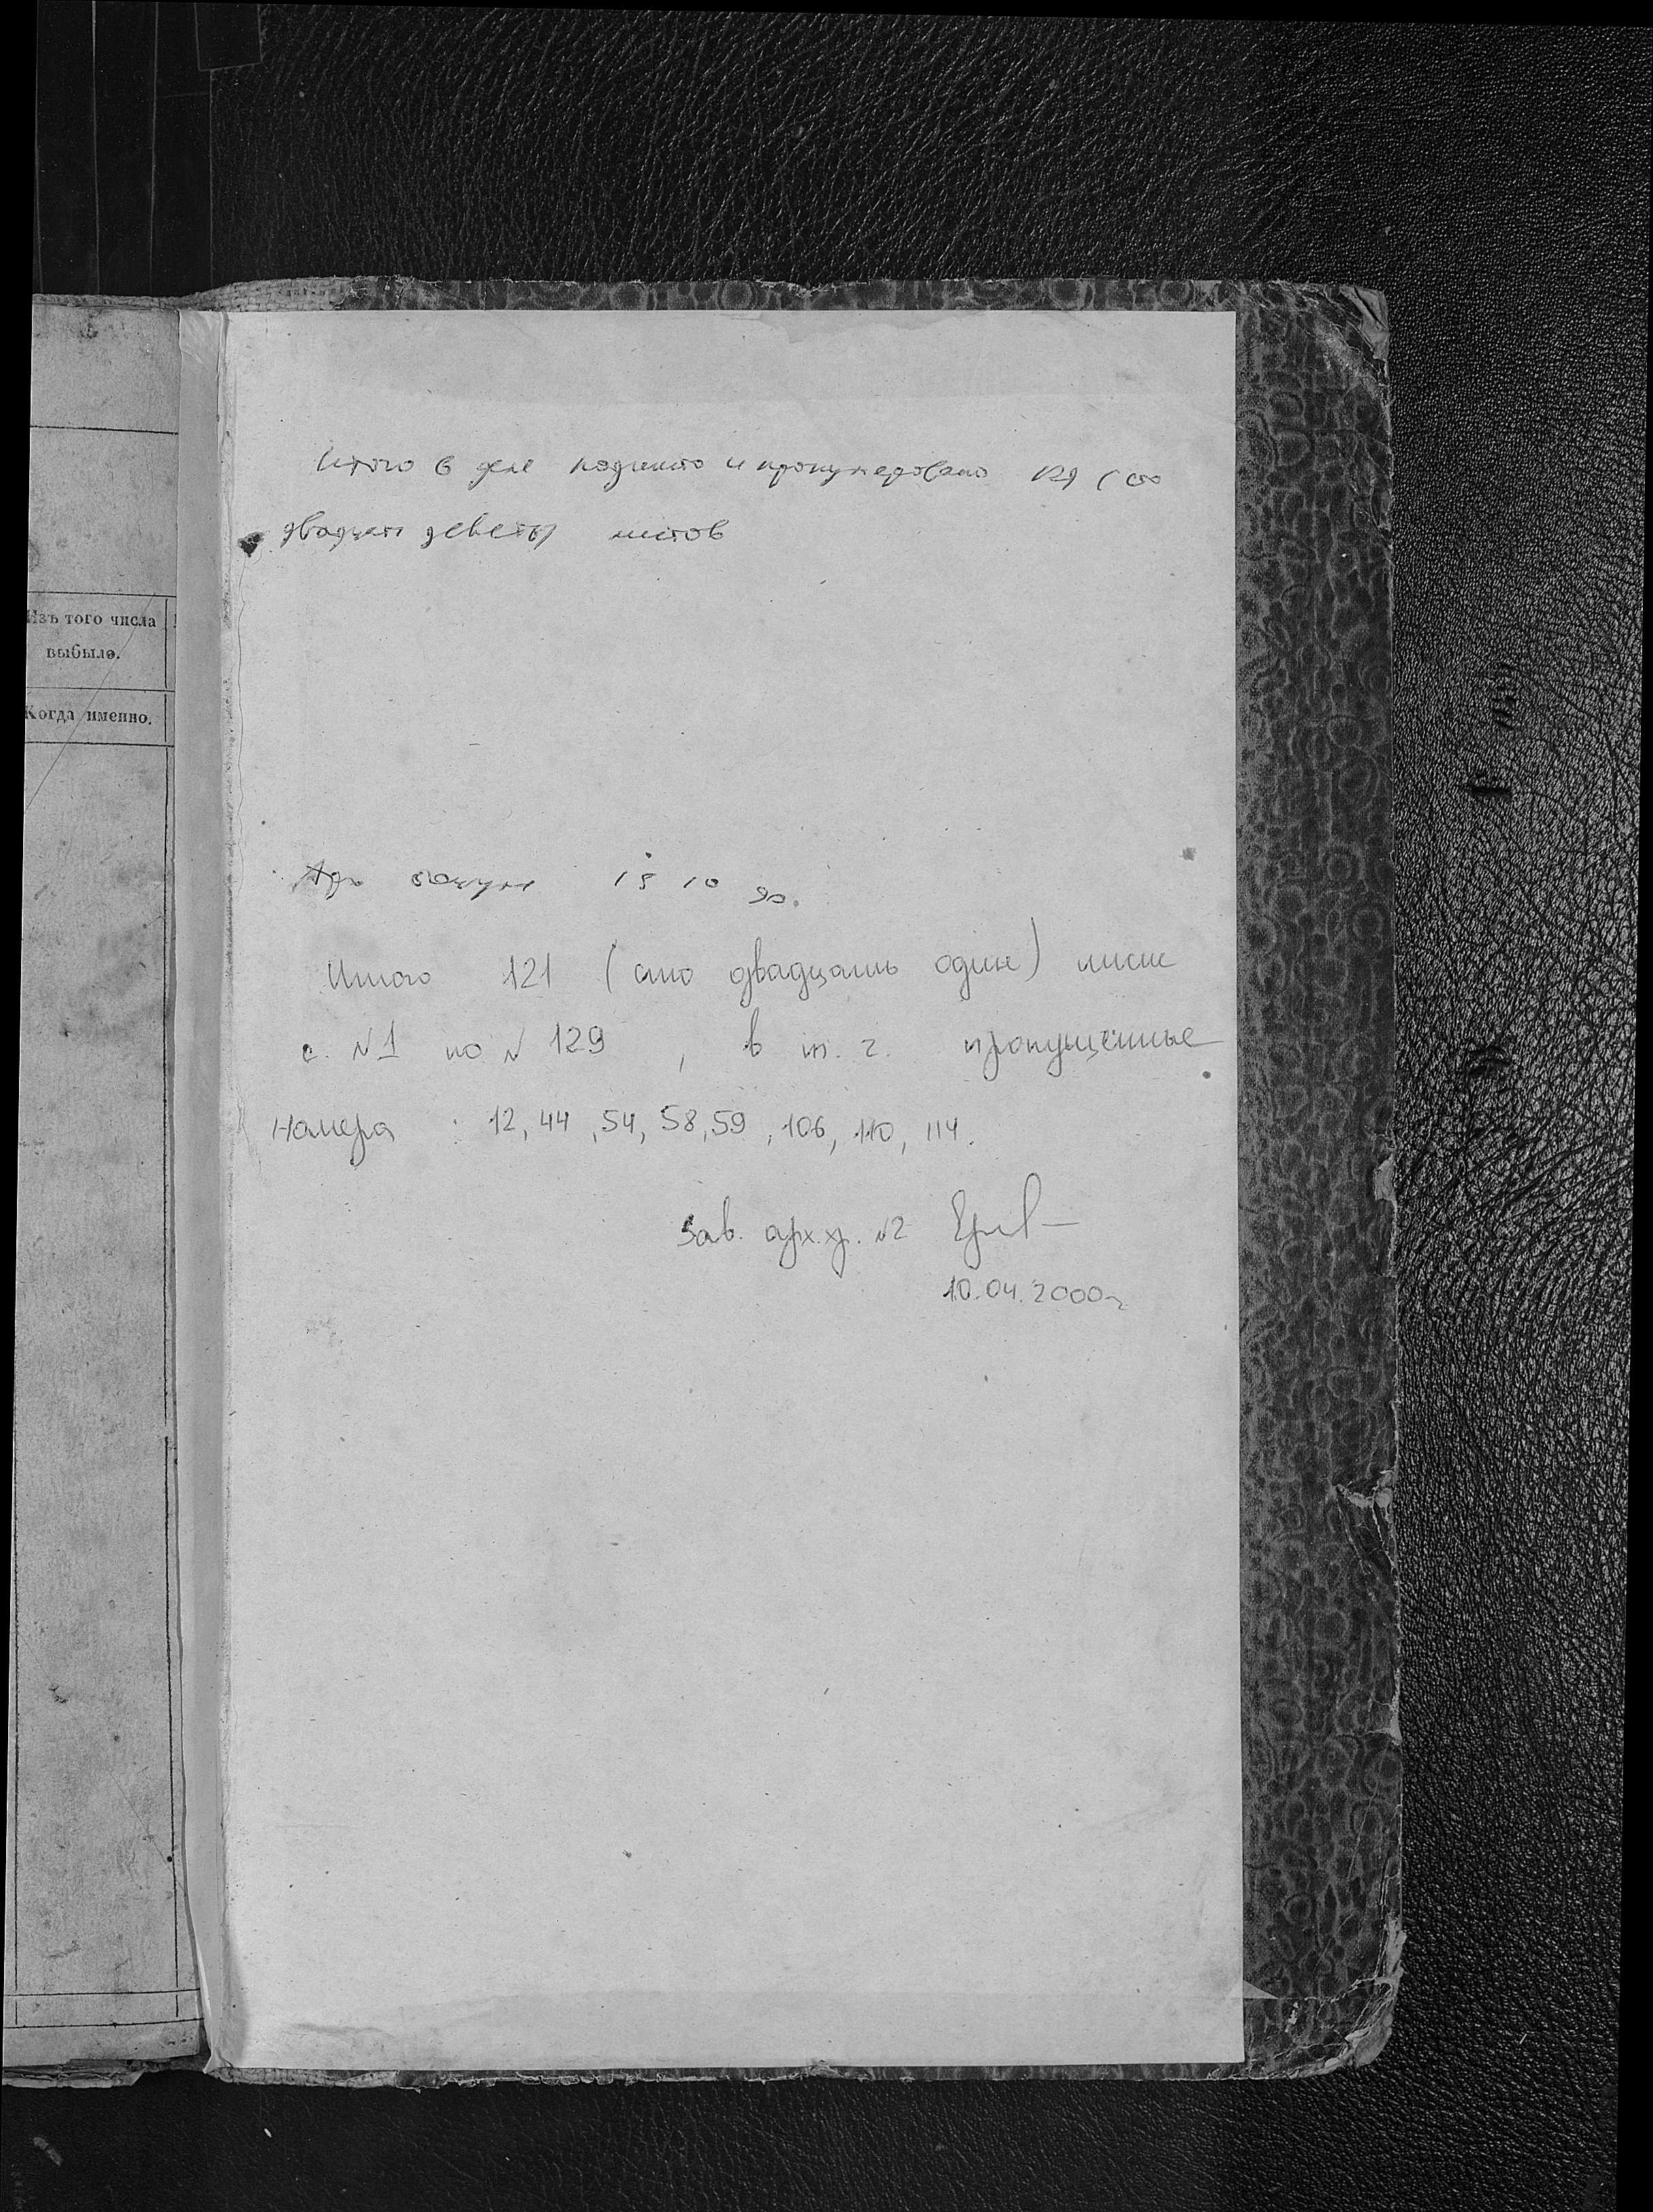 Изъ того числа
выбыло.
Когда именно.
Итого в деле подшито и пронумеровано 129 (сто
двадцать девять) листов
15 10 90.
Итого 121 (сто двадцать один) лист
с №1 по № 129, в т.ч. пропущенные
номера: 12, 44, 54, 58, 59, 106, 110, 114.
Зав. арх.хр. №2
10.04.2000г